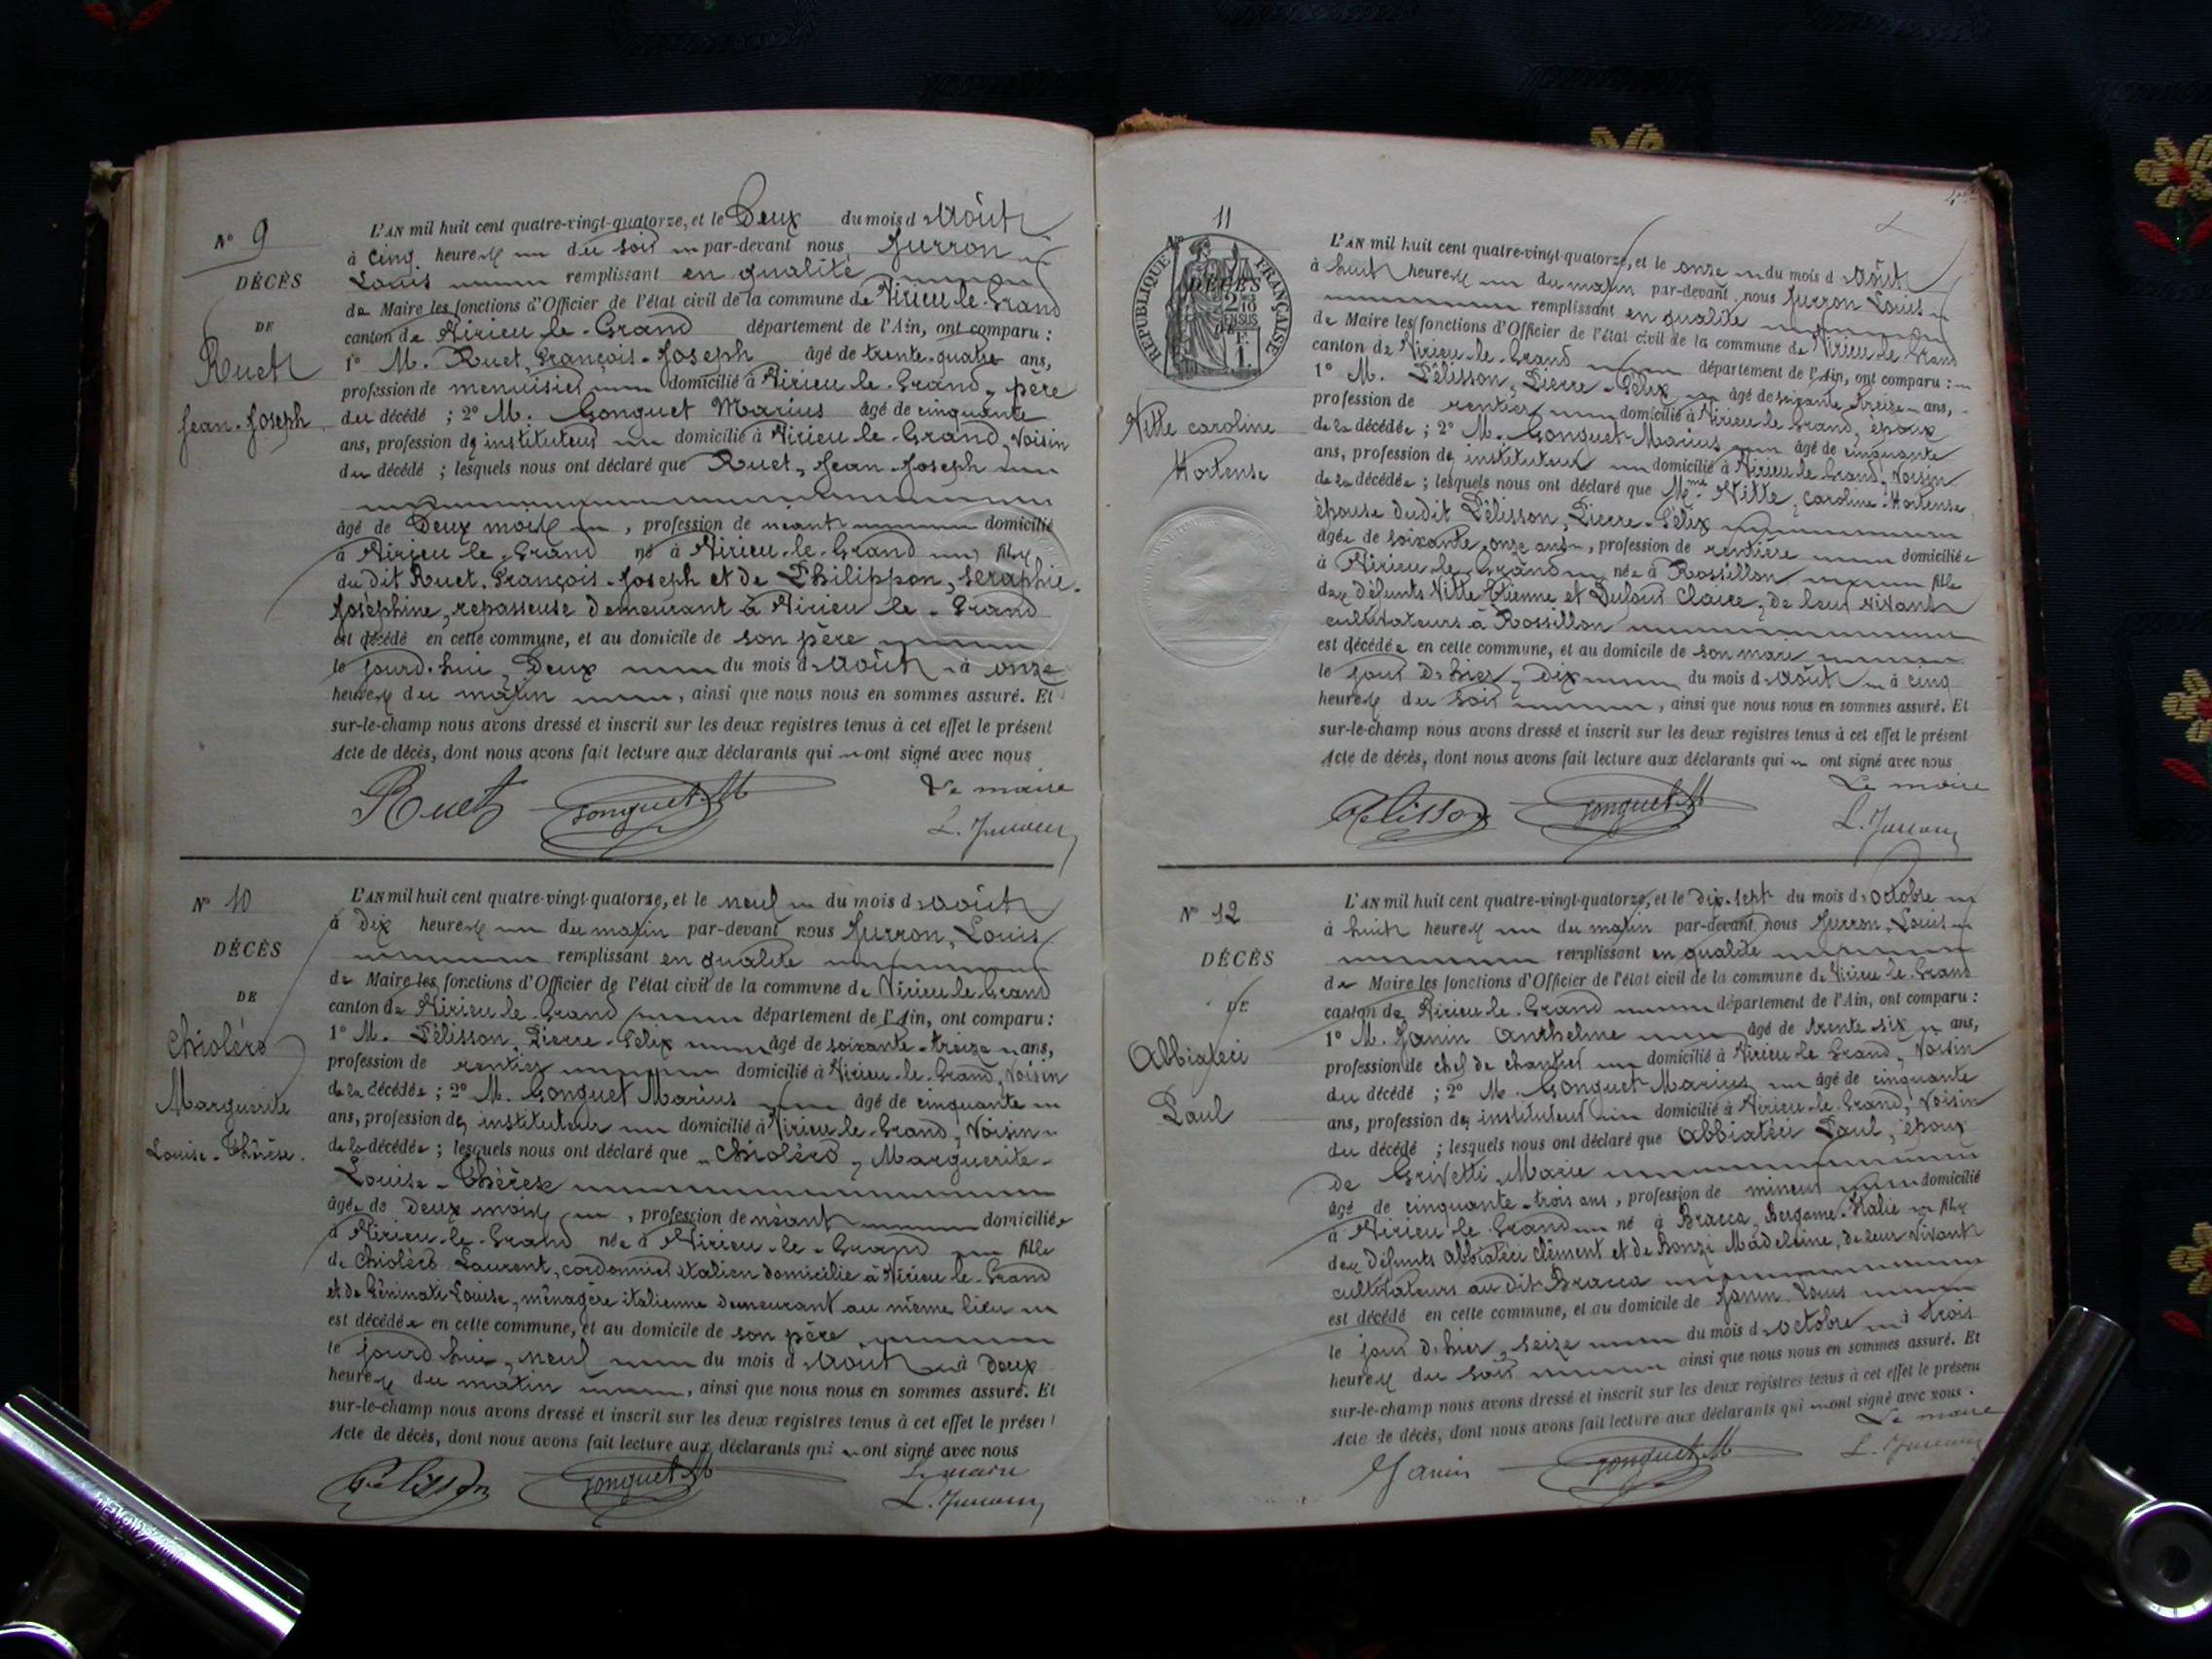 N° 9
DÉCÈS
DE
Ruet
Jean-Joseph
L'AN mil huit cent quatre-vingt-quatorze, et le Deux du mois d'Août
à Cinq heures du soir par-devant nous Jurron
Louis remplissant en qualité
de Maire les fonctions d'Officier de l'état civil de la commune de Virieu-le-Grand
canton de Virieu-le-Grand département de l'Ain, ont comparu :
1° M. Ruet, François-Joseph âgé de trente-quatre ans,
profession de menuisier domicilié à Virieu-le-Grand, père
du décédé ; 2° M. Gonguet Marius âgé de cinquante
ans, profession de instituteur domicilié à Virieu-le-Grand, Voisin
du décédé ; lesquels nous ont déclaré que Ruet, Jean-Joseph
âgé de Deux mois, profession de néant domicilié
à Virieu-le-Grand né à Virieu-le-Grand fils
du dit Ruet, François-Joseph et de Philippon, Séraphie-
Joséphine, repasseuse demeurant à Virieu-le-Grand
est décédé en cette commune, et au domicile de son père
le jourd'hui, Deux du mois d'Août à onze
heures du matin, ainsi que nous nous en sommes assuré. Et
sur-le-champ nous avons dressé et inscrit sur les deux registres tenus à cet effet le présent
Acte de décès, dont nous avons fait lecture aux déclarants qui ont signé avec nous
Ruet Gonguet M Le maire
L. Jurron
N° 10
DÉCÈS
DE
Chioléro
Marguerite
Louise-Thérèse.
L'AN mil huit cent quatre-vingt-quatorze, et le neuf du mois d'Août
à Dix heures du matin par-devant nous Jurron, Louis
remplissant en qualité
de Maire les fonctions d'Officier de l'état civil de la commune de Virieu-le-Grand
canton de Virieu-le-Grand département de l'Ain, ont comparu :
1° M. Pélisson, Pierre-Félix âgé de soixante-treize ans,
profession de rentier domicilié à Virieu-le-Grand, Voisin
de la décédée ; 2° M. Gonguet Marius âgé de cinquante
ans, profession de instituteur domicilié à Virieu-le-Grand, Voisin
de la décédée ; lesquels nous ont déclaré que Chioléro, Marguerite-
Louise-Thérèse
âgée de Deux mois, profession de néant domiciliée
à Virieu-le-Grand née à Virieu-le-Grand fille
de Chioléro Laurent, cordonnier italien domicilié à Virieu-le-Grand
et de Géninati Louise, ménagère italienne demeurant au même lieu
est décédée en cette commune, et au domicile de son père
le jourd'hui, neuf du mois d'Août à Deux
heures du matin, ainsi que nous nous en sommes assuré. Et
sur-le-champ nous avons dressé et inscrit sur les deux registres tenus à cet effet le présent
Acte de décès, dont nous avons fait lecture aux déclarants qui ont signé avec nous
Pélisson Gonguet M Le maire
L. Jurron
11
N°
RÉPUBLIQUE FRANÇAISE
DÉCÈS
2/10 EN SUS
DE
Nitte caroline
Hortense
L'AN mil huit cent quatre-vingt-quatorze, et le onze du mois d'Août
à huit heures du matin par-devant nous Jurron Louis
remplissant en qualité
de Maire les fonctions d'Officier de l'état civil de la commune de Virieu-le-Grand
canton de Virieu-le-Grand département de l'Ain, ont comparu :
1° M. Pélisson, Pierre-Félix âgé de soixante-treize ans,
profession de rentier domicilié à Virieu-le-Grand, époux
de la décédée ; 2° M. Gonguet Marius âgé de cinquante
ans, profession de instituteur domicilié à Virieu-le-Grand, Voisin
de la décédée ; lesquels nous ont déclaré que Mme Nitte, Caroline-Hortense,
épouse dudit Pélisson, Pierre-Félix
âgée de soixante-onze ans, profession de rentière domiciliée
à Virieu-le-Grand née à Rossillon fille
des défunts Nitte Etienne et Dufour Claire, de leur vivant
cultivateurs à Rossillon
est décédée en cette commune, et au domicile de son mari
le jour d'hier, Dix du mois d'Août à cinq
heures du soir, ainsi que nous nous en sommes assuré. Et
sur-le-champ nous avons dressé et inscrit sur les deux registres tenus à cet effet le présent
Acte de décès, dont nous avons fait lecture aux déclarants qui ont signé avec nous
Le maire
Pélisson Gonguet M L. Jurron
N° 12
DÉCÈS
DE
Abbiatéci
Paul
L'AN mil huit cent quatre-vingt-quatorze, et le dix-sept du mois d'Octobre
à huit heures du matin par-devant nous Jurron, Louis
remplissant en qualité
de Maire les fonctions d'Officier de l'état civil de la commune de Virieu-le-Grand
canton de Virieu-le-Grand département de l'Ain, ont comparu :
1° M. Janin Anthelme âgé de trente-six ans,
profession de chef de chantier domicilié à Virieu-le-Grand, Voisin
du décédé ; 2° M. Gonguet Marius âgé de cinquante
ans, profession de instituteur domicilié à Virieu-le-Grand, Voisin
du décédé ; lesquels nous ont déclaré que Abbiatéci Paul, époux
de Grivetti Marie
âgé de cinquante-trois ans, profession de mineur domicilié
à Virieu-le-Grand né à Bracca, Bergame, Italie fils
des défunts Abbiatéci Clément et de Bonzi Madeleine, de leur vivant
cultivateurs au dit Bracca
est décédé en cette commune, et au domicile de Janin Louis
le jour d'hier, seize du mois d'octobre à trois
heures du soir ainsi que nous nous en sommes assuré. Et
sur-le-champ nous avons dressé et inscrit sur les deux registres tenus à cet effet le présent
Acte de décès, dont nous avons fait lecture aux déclarants qui ont signé avec nous.
Le maire
Janin Gonguet M L. Jurron